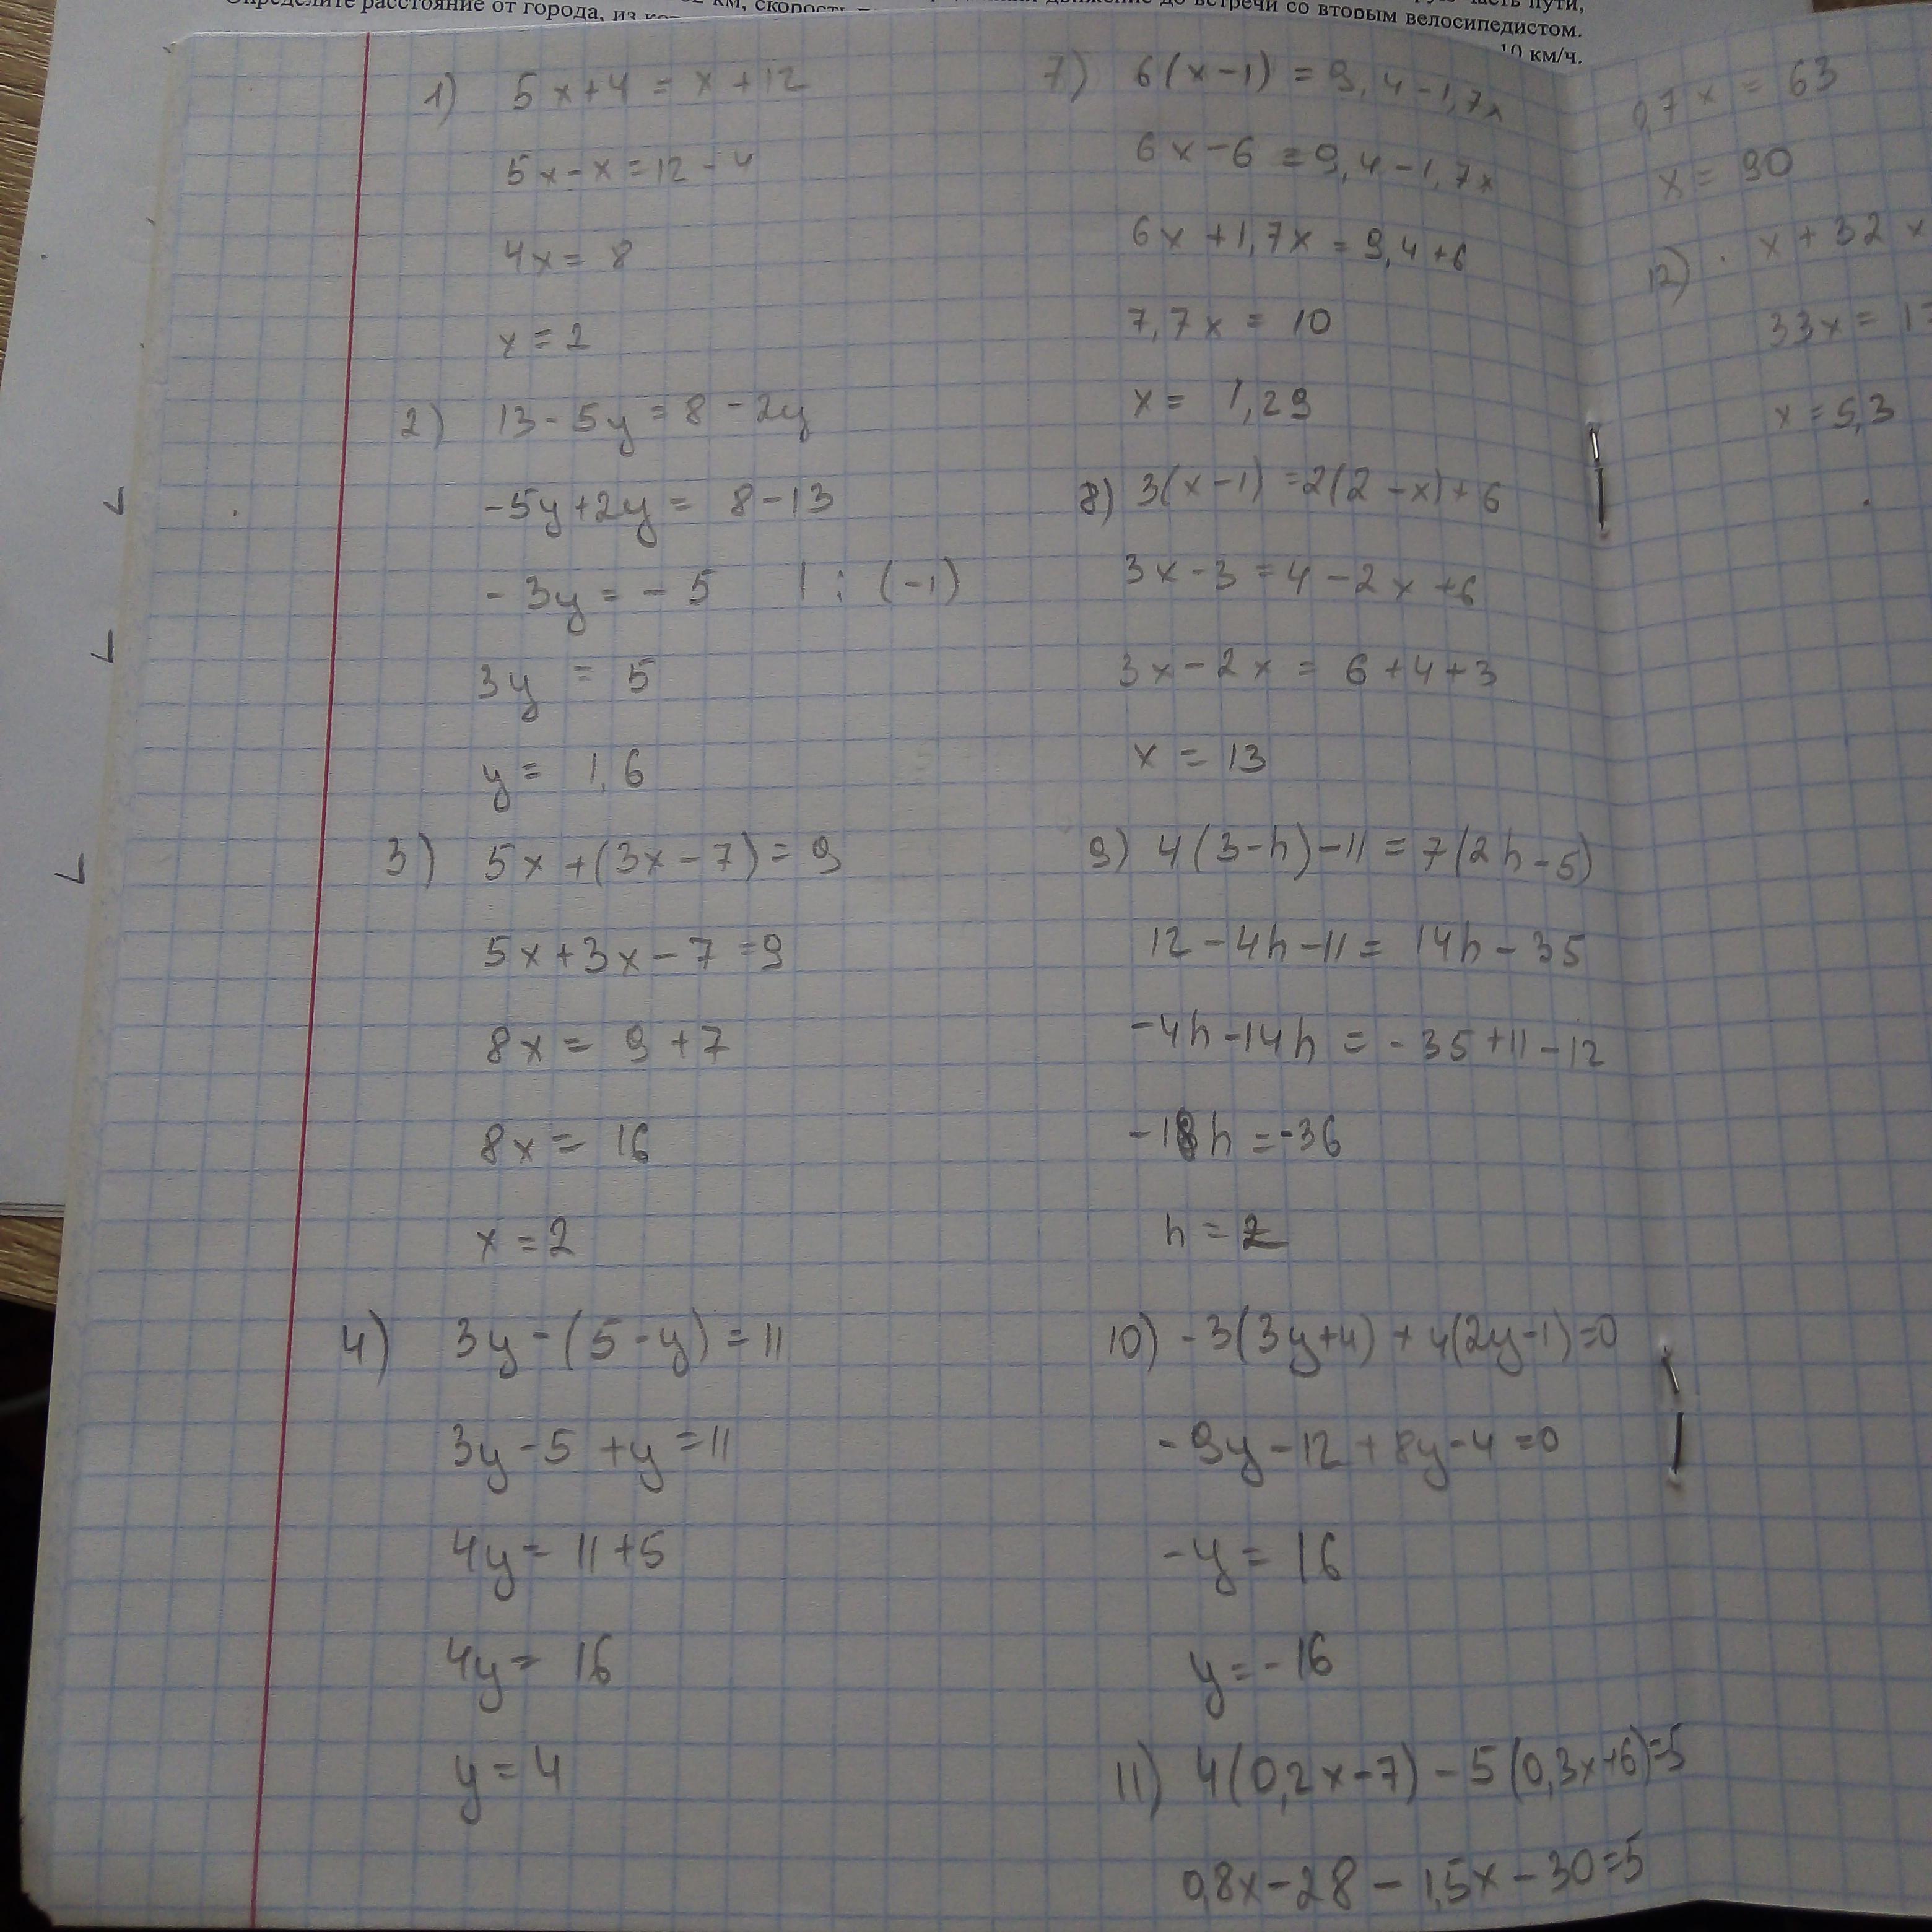 Определите расстояние от города, из
км, скорость
до встречи со вторым велосипедистом.
10 км/ч.
1) 5x+4=x+12
5x-x=12-4
4x=8
x=2
2) 13-5y=8-2y
-5y+2y=8-13
-3y=-5 |:(-1)
3y=5
y=1,6
3) 5x+(3x-7)=9
5x+3x-7=9
8x=9+7
8x=16
x=2
4) 3y-(5-y)=11
3y-5+y=11
4y=11+5
4y=16
y=4
7) 6(x-1)=9,4-1,7x
6x-6=9,4-1,7x
6x+1,7x=9,4+6
7,7x=10
x=1,29
8) 3(x-1)=2(2-x)+6
3x-3=4-2x+6
3x-2x=6+4+3
x=13
9) 4(3-h)-11=7(2h-5)
12-4h-11=14h-35
-4h-14h=-35+11-12
-18h=-36
h=2
10) -3(3y+4)+4(2y-1)=0
-9y-12+8y-4=0
-y=16
y=-16
11) 4(0,2x-7)-5(0,3x+6)=5
0,8x-28-1,5x-30=5
0,7x=63
x=90
12) x+32x
33x=1
x=5,3